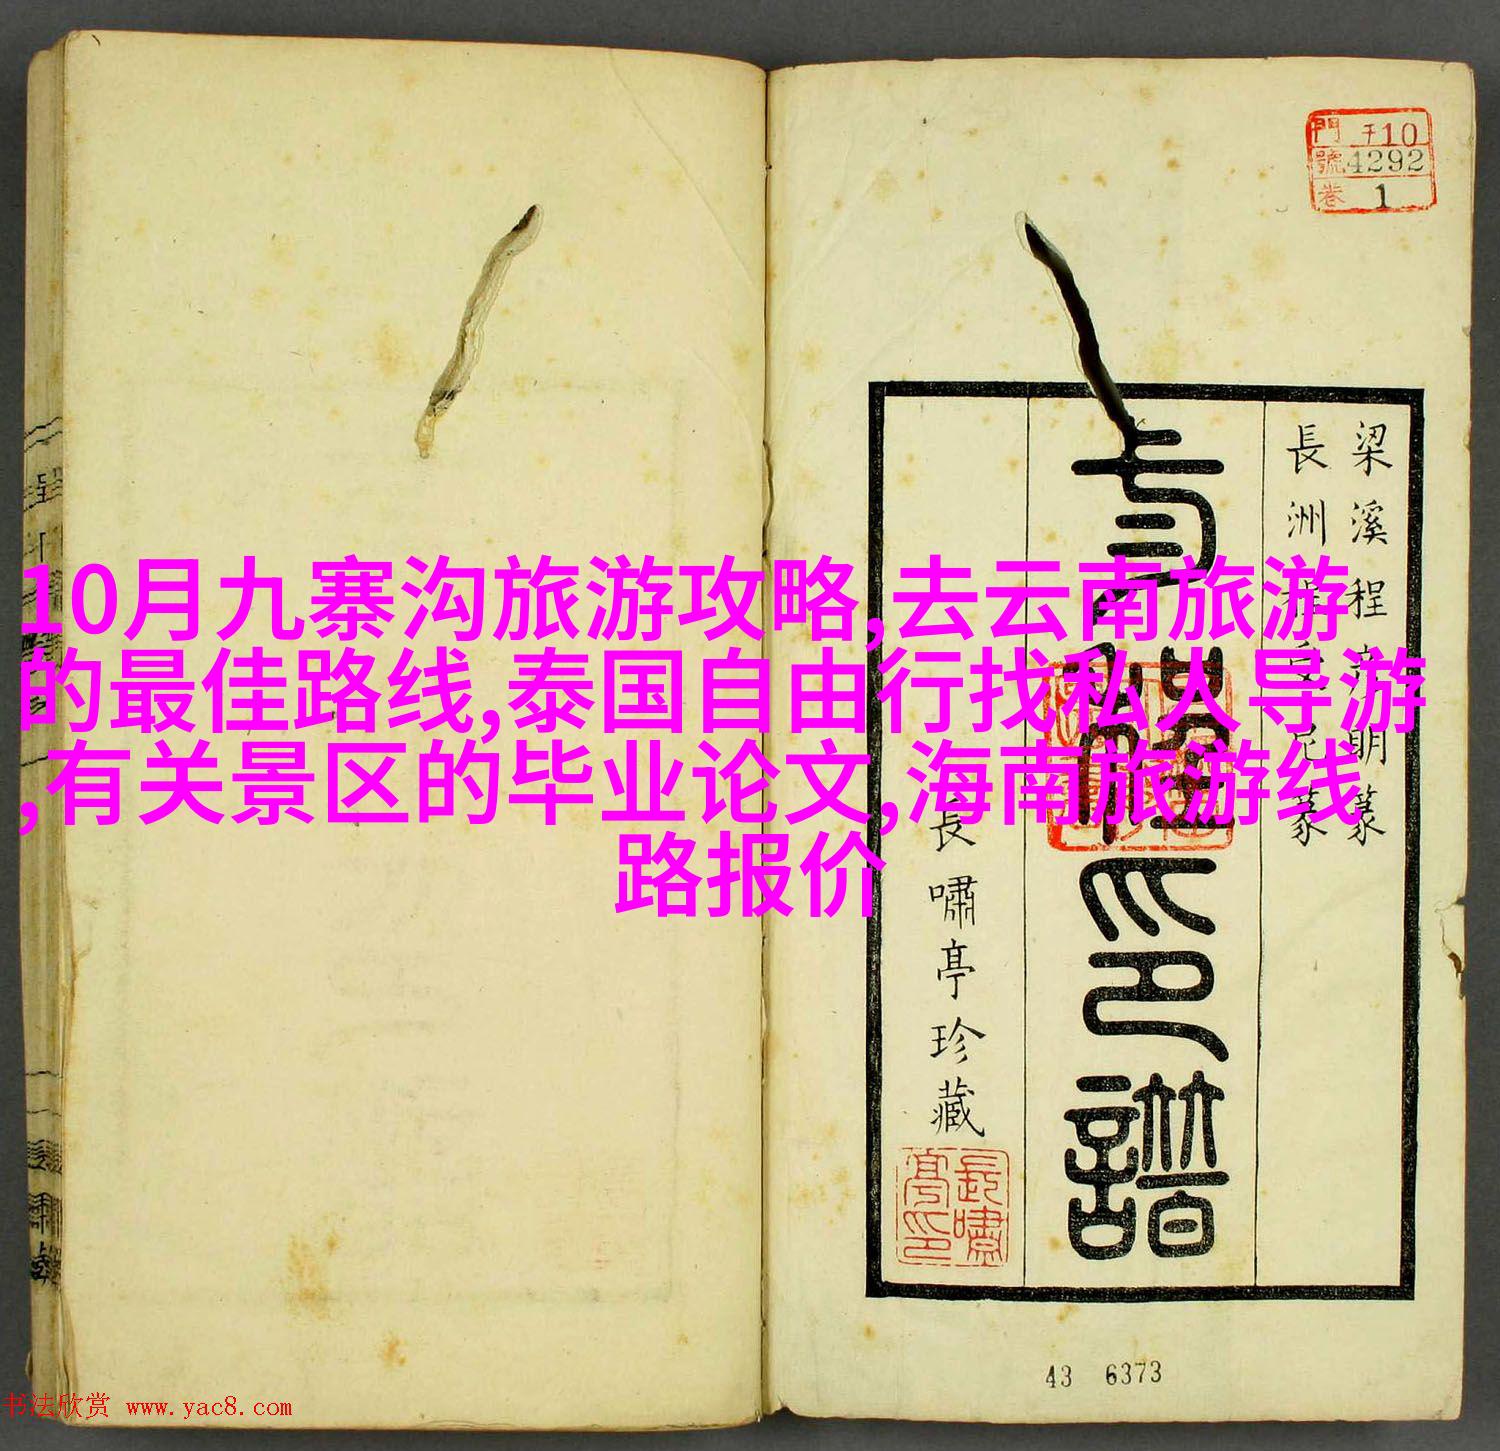 門 于10
號 4292
卷 1
梁溪程
明篆
長洲
篆
印譜
長嘯亭珍藏
長嘯亭印
10月九寨沟旅游攻略,去云南旅游
的最佳路线,泰国自由行找私人导游
,有关景区的毕业论文,海南旅游线
路报价
43 6373
书法欣赏 www.yac8.com